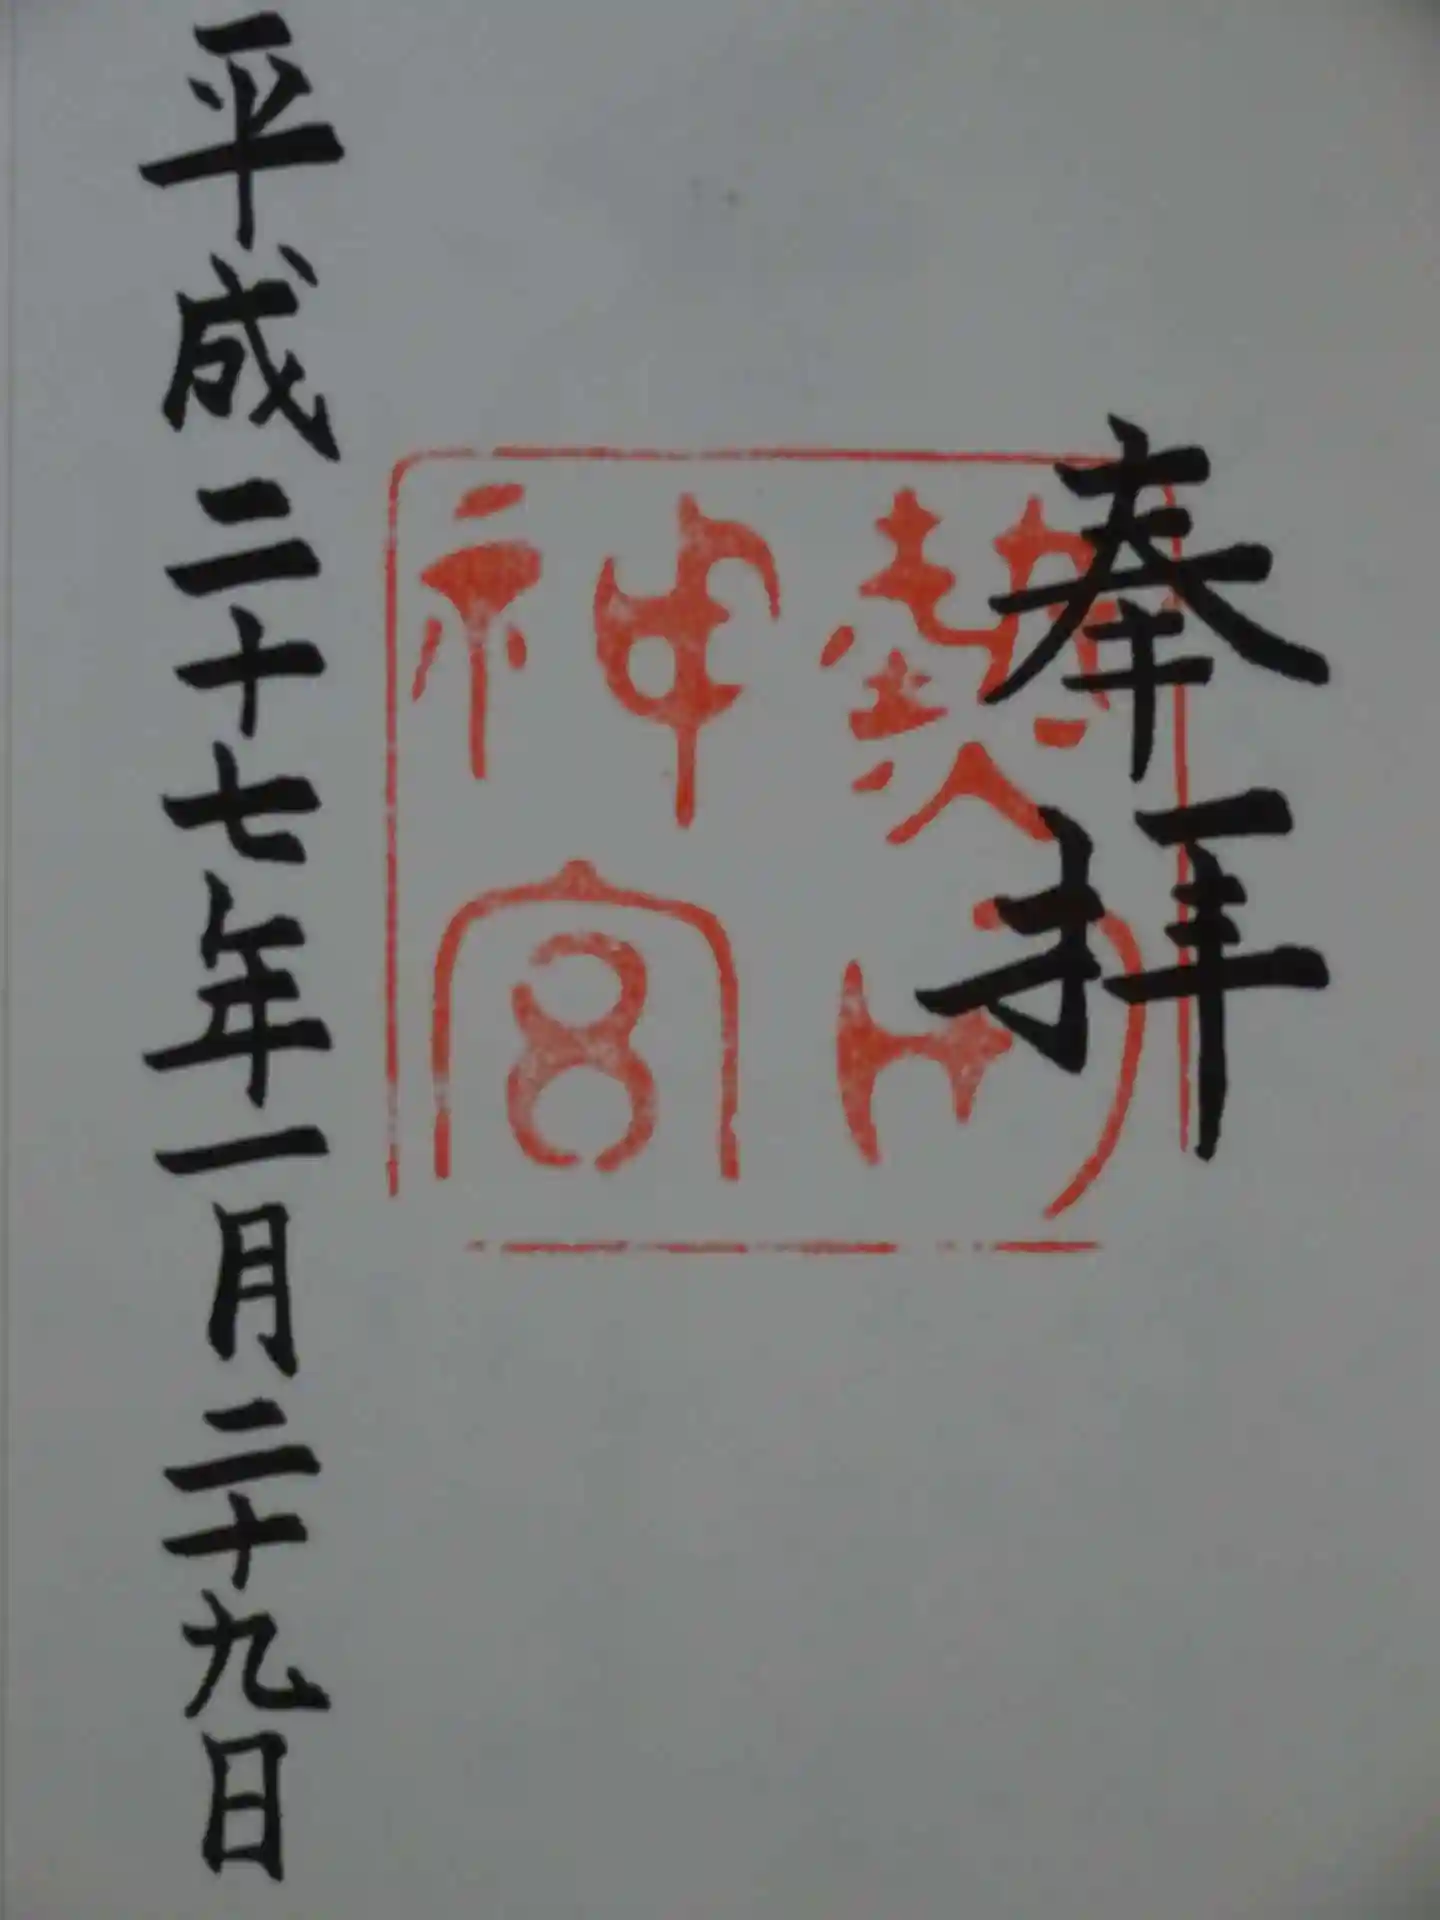 奉拝
熱田神宮
平成二十七年一月二十九日